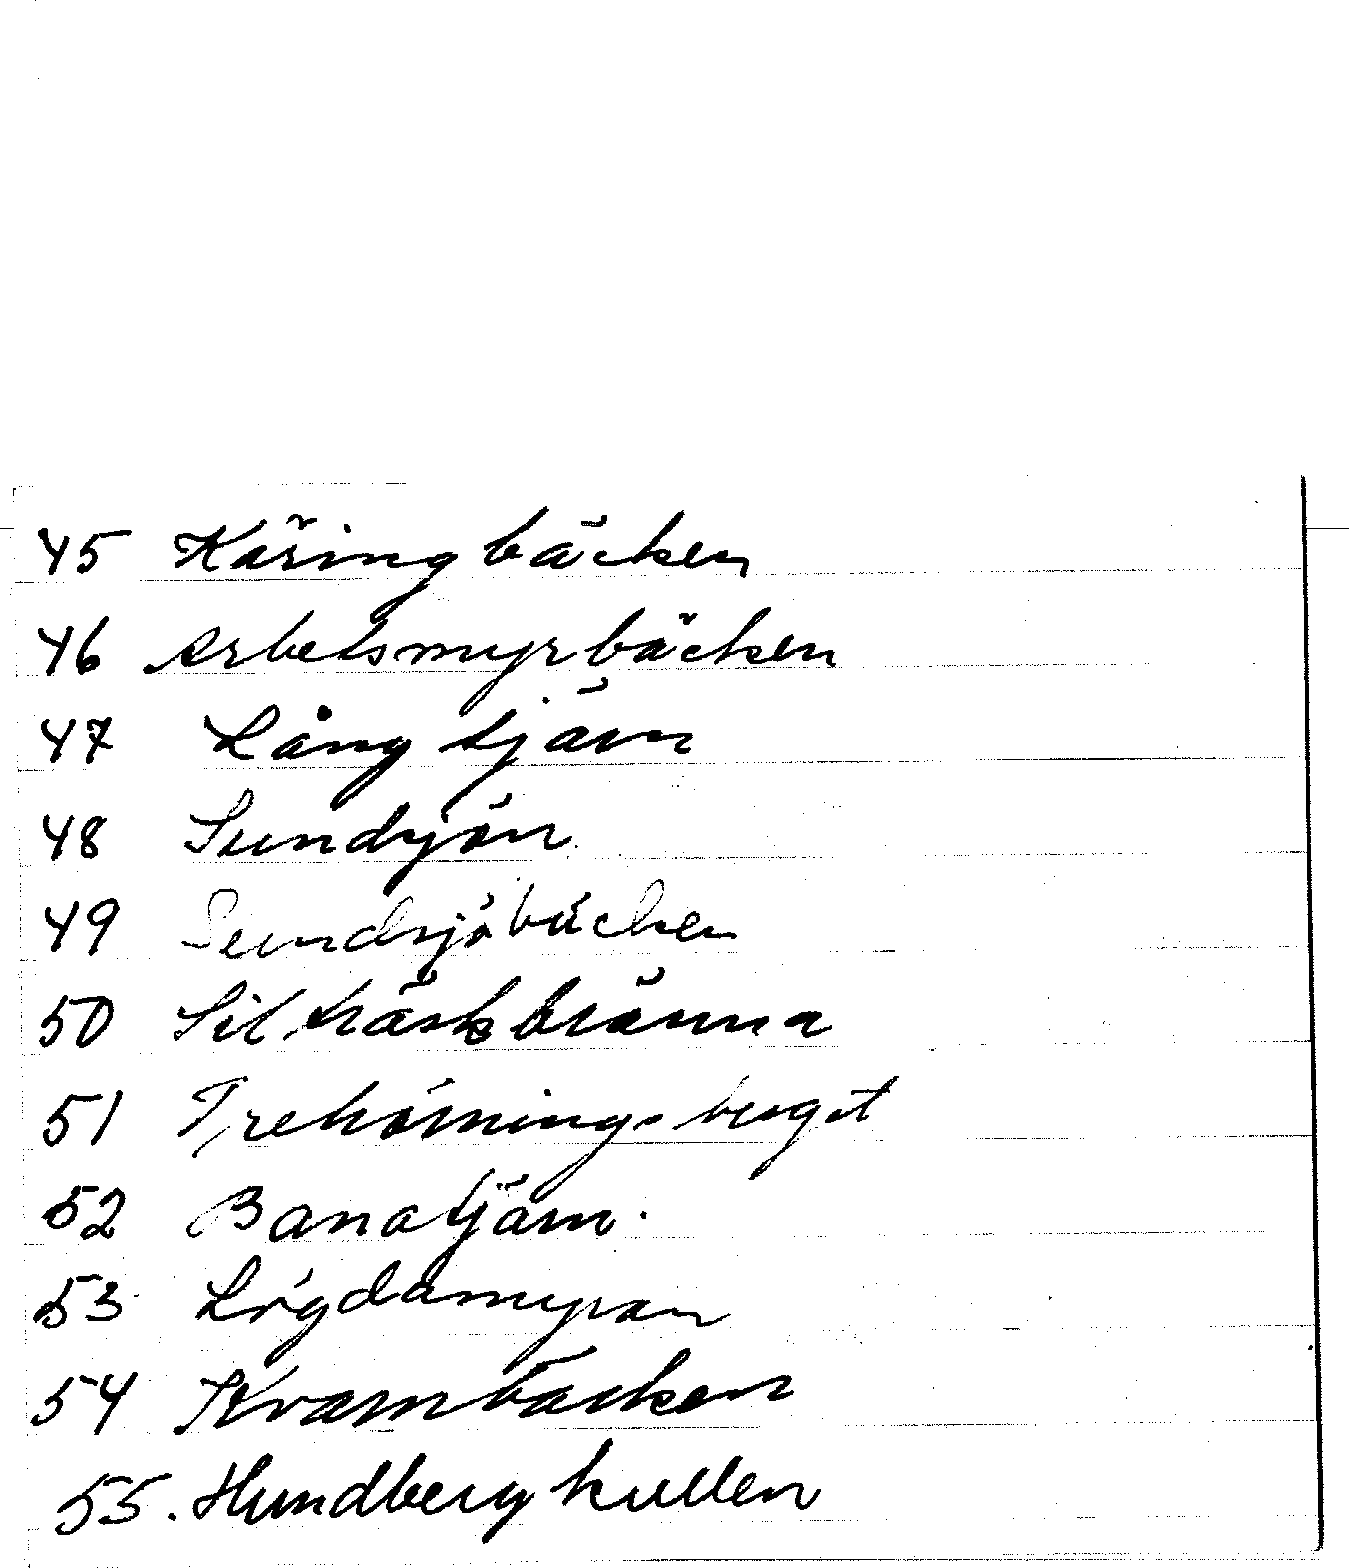 45 Käringbäcken
46 Arbetsmyrbäcken
47 Långtjärn
48 Sundsjön
49 Sundsjöbäcken
50 Silträskbränna
51 Trehörningsberget
52 Banatjärn.
53 Lögdamyran
54 Kvarnbäcken
55. Hundbergkullen